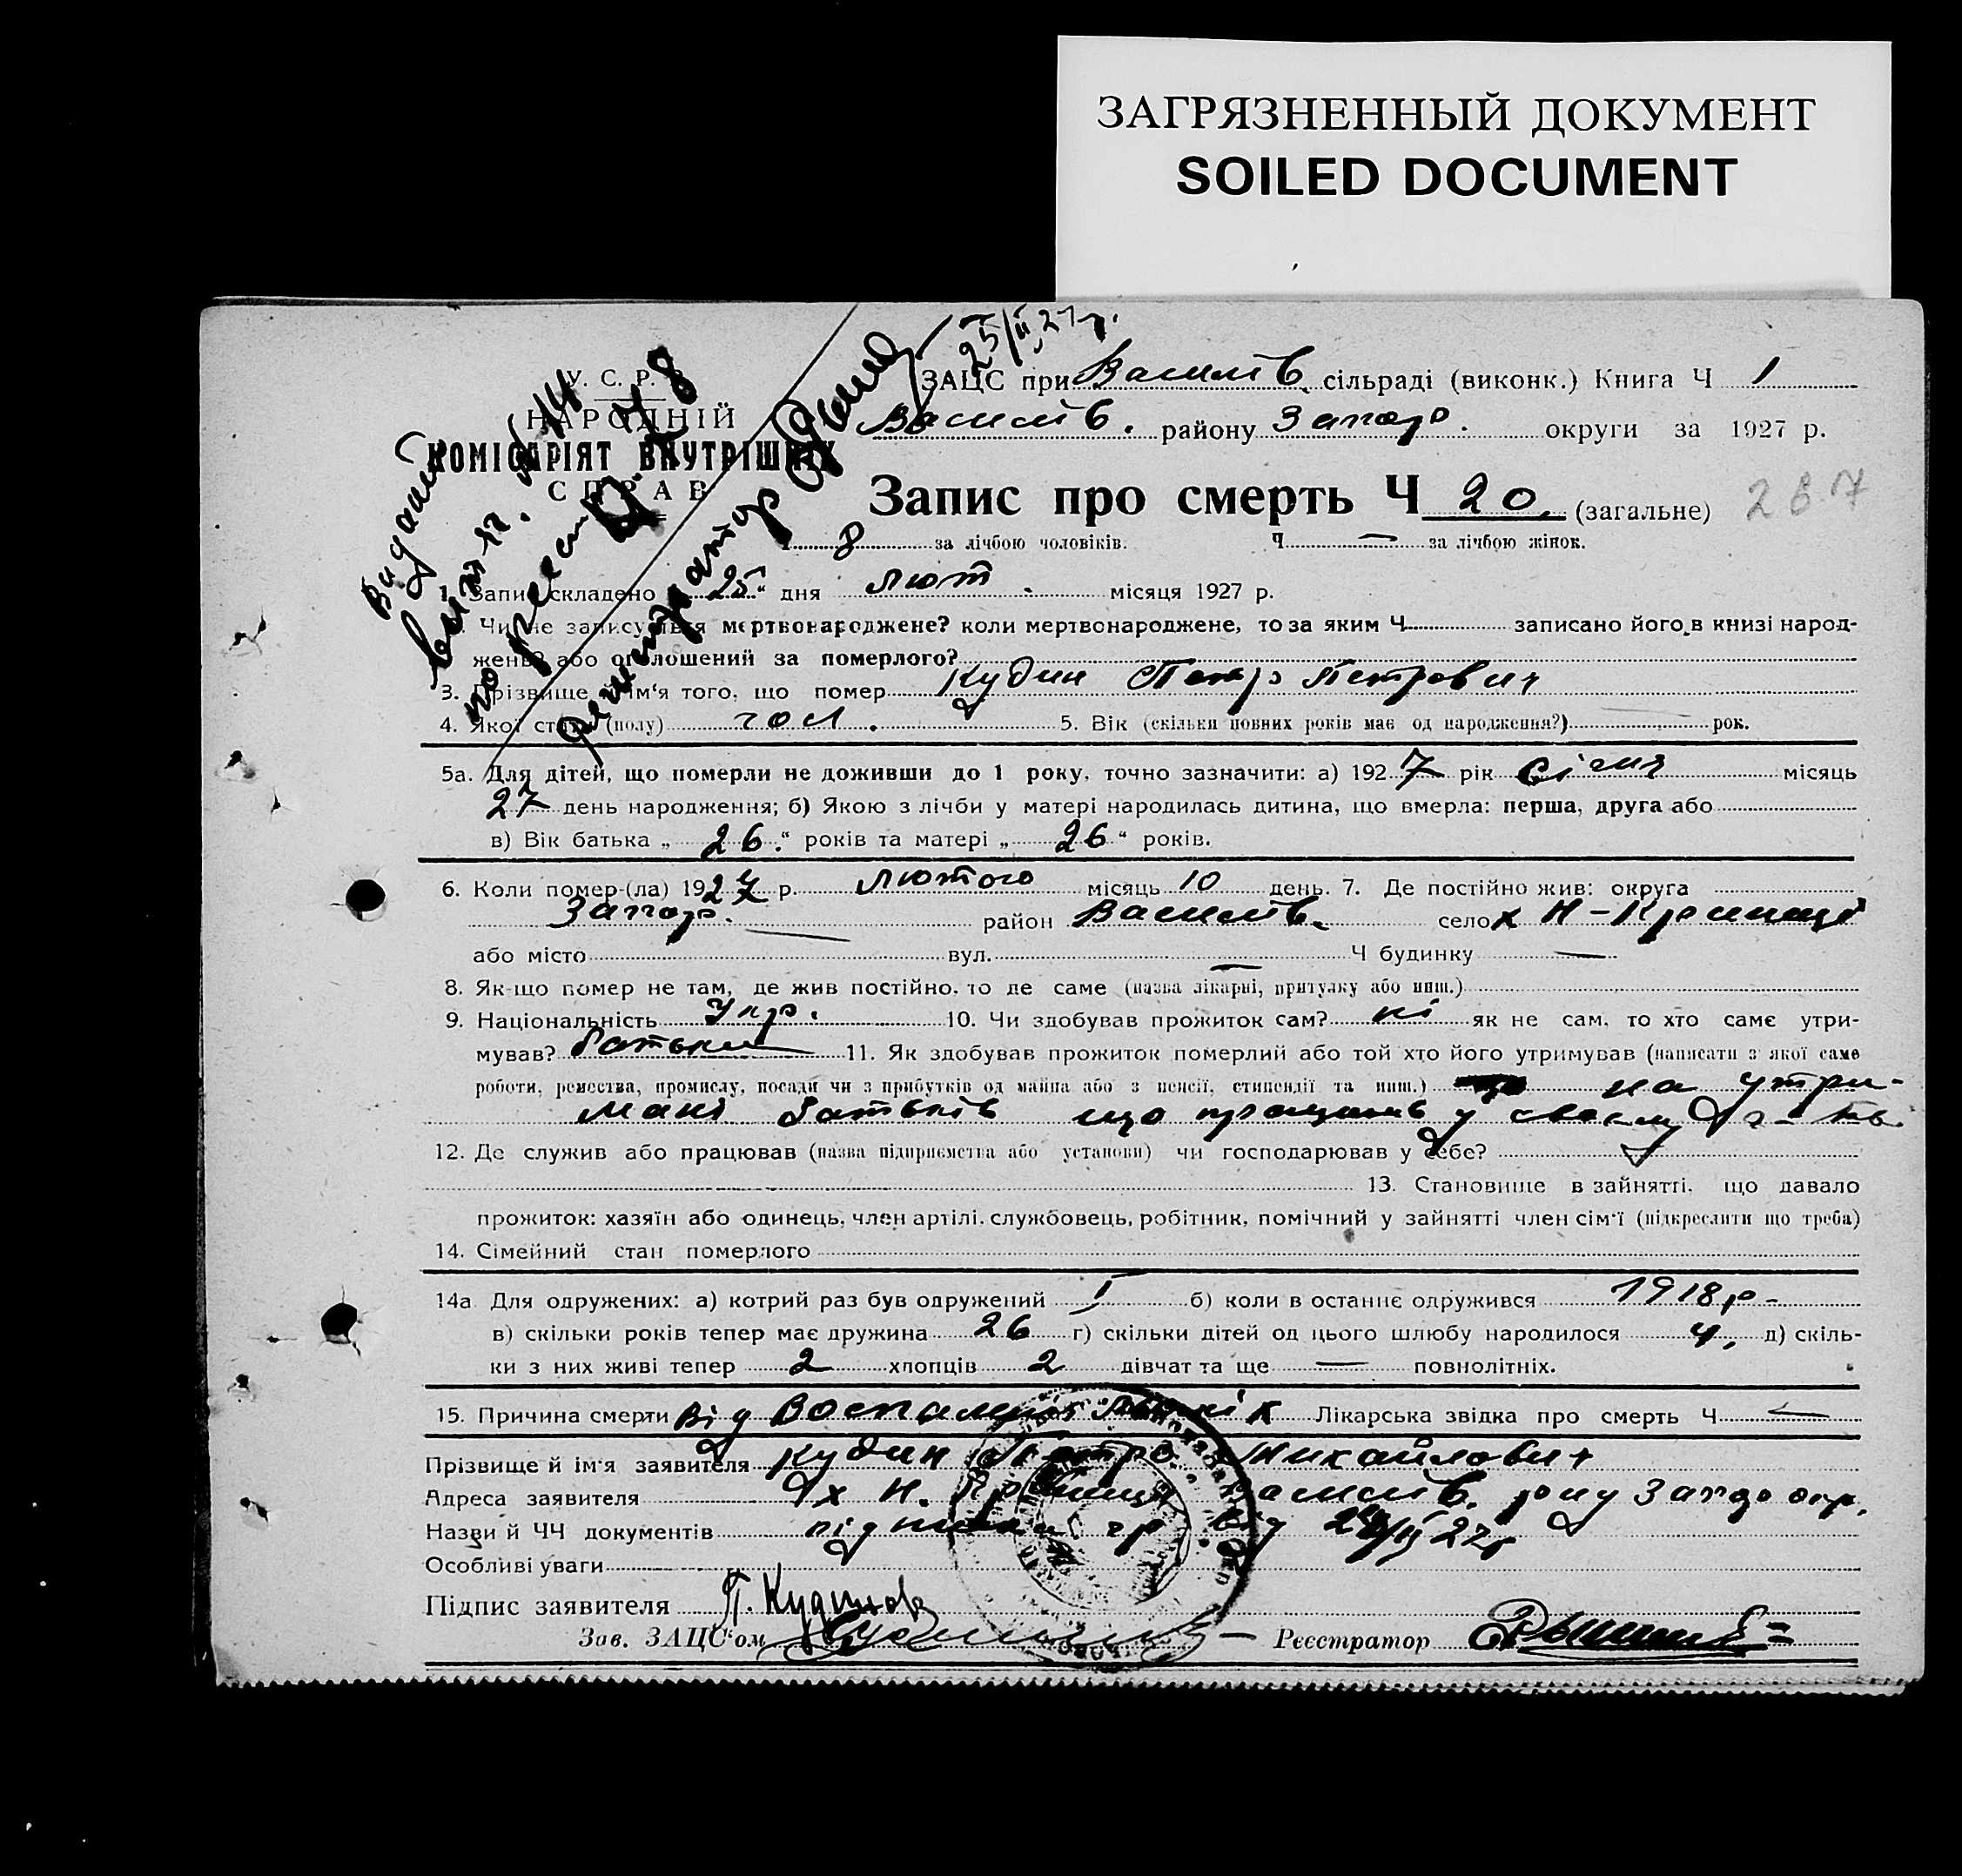 ЗАГРЯЗНЕННЫЙ ДОКУМЕНТ
SOILED DOCUMENT
25/II 27 р.
У. С. Р. Р.
НАРОДНІЙ
КОМІСАРІЯТ ВНУТРІШНІХ
СПРАВ
Видано
витяг. №14
по реєстр.
Реєстратор
ЗАЦС при Василів сільраді (виконк.) Книга Ч 1
Василів. району Запор. округи за 1927 р.
Запис про смерть Ч 20. (загальне) 267
Ч 8 за лічбою чоловіків. Ч — за лічбою жінок.
1. Запис складено „25“ дня лют. місяця 1927 р.
2. Чи не записується мертвонароджене? коли мертвонароджене, то за яким Ч. записано його в книзі народ-
жень? або оголошений за померлого?
3. Прізвище й ім‘я того, що помер Кудин Петр Петрович
4. Якої статі (полу) чол. 5. Вік (скільки повних років має од народження?) рок.
5а. Для дітей, що померли не доживши до 1 року, точно зазначити: а) 1927 рік січня місяць
27 день народження; б) Якою з лічби у матері народилась дитина, що вмерла: перша, друга або
в) Вік батька „26.“ років та матері „26“ років.
6. Коли помер-(ла) 1927 р. лютого місяць 10 день. 7. Де постійно жив: округа
Запор. район Василів. село х Н-Криниці
або місто вул. Ч будинку —
8. Як-що помер не там, де жив постійно, то де саме (назва лікарні, притулку або инш.)
9. Національність Укр. 10. Чи здобував прожиток сам? ні як не сам, то хто саме утри-
мував? батьки 11. Як здобував прожиток померлий або той хто його утримував (написати з якої саме
роботи, ремества, промислу, посади чи з прибутків од майна або з пенсії, стипендії та инш.) на утри-
мані батьків що працюють у своєму
12. Де служив або працював (назва підприємства або установи) чи господарював у себе?
13. Становище в зайнятті, що давало
прожиток: хазяїн або одинець, член артілі, службовець, робітник, помічний у зайнятті член сім‘ї (підкреслити що треба)
14. Сімейний стан померлого
14а Для одружених: а) котрий раз був одружений I б) коли в останнє одружився 1918 р-
в) скільки років тепер має дружина 26 г) скільки дітей од цього шлюбу народилося 4, д) скіль-
ки з них живі тепер 2 хлопців 2 дівчат та ще — повнолітніх.
15. Причина смерти Від Воспаления Лікарська звідка про смерть Ч —
Прізвище й ім‘я заявителя Кудин Петро Михайлович
Адреса заявителя х Н. Криниці Василів. рону Запор окр.
Назви й ЧЧ документів підписка гр від
Особливі уваги
Підпис заявителя П. Кудинов
Зав. ЗАЦС‘ом Реєстратор